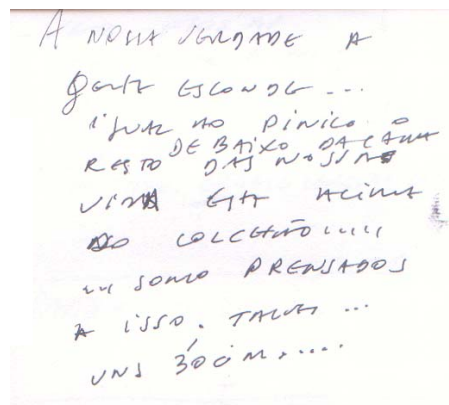 A NOSSA VERDADE A
gente ESCONDE...
igual ao PINICO o
DEBAIXO DA CAMA
RESTO DAS NOSSAS
VIDA ESTA ACIMA
DO COLCHÃO.....
... somo PRENSADOS
A isso. TALVEZ ...
UNS 30 cm.....